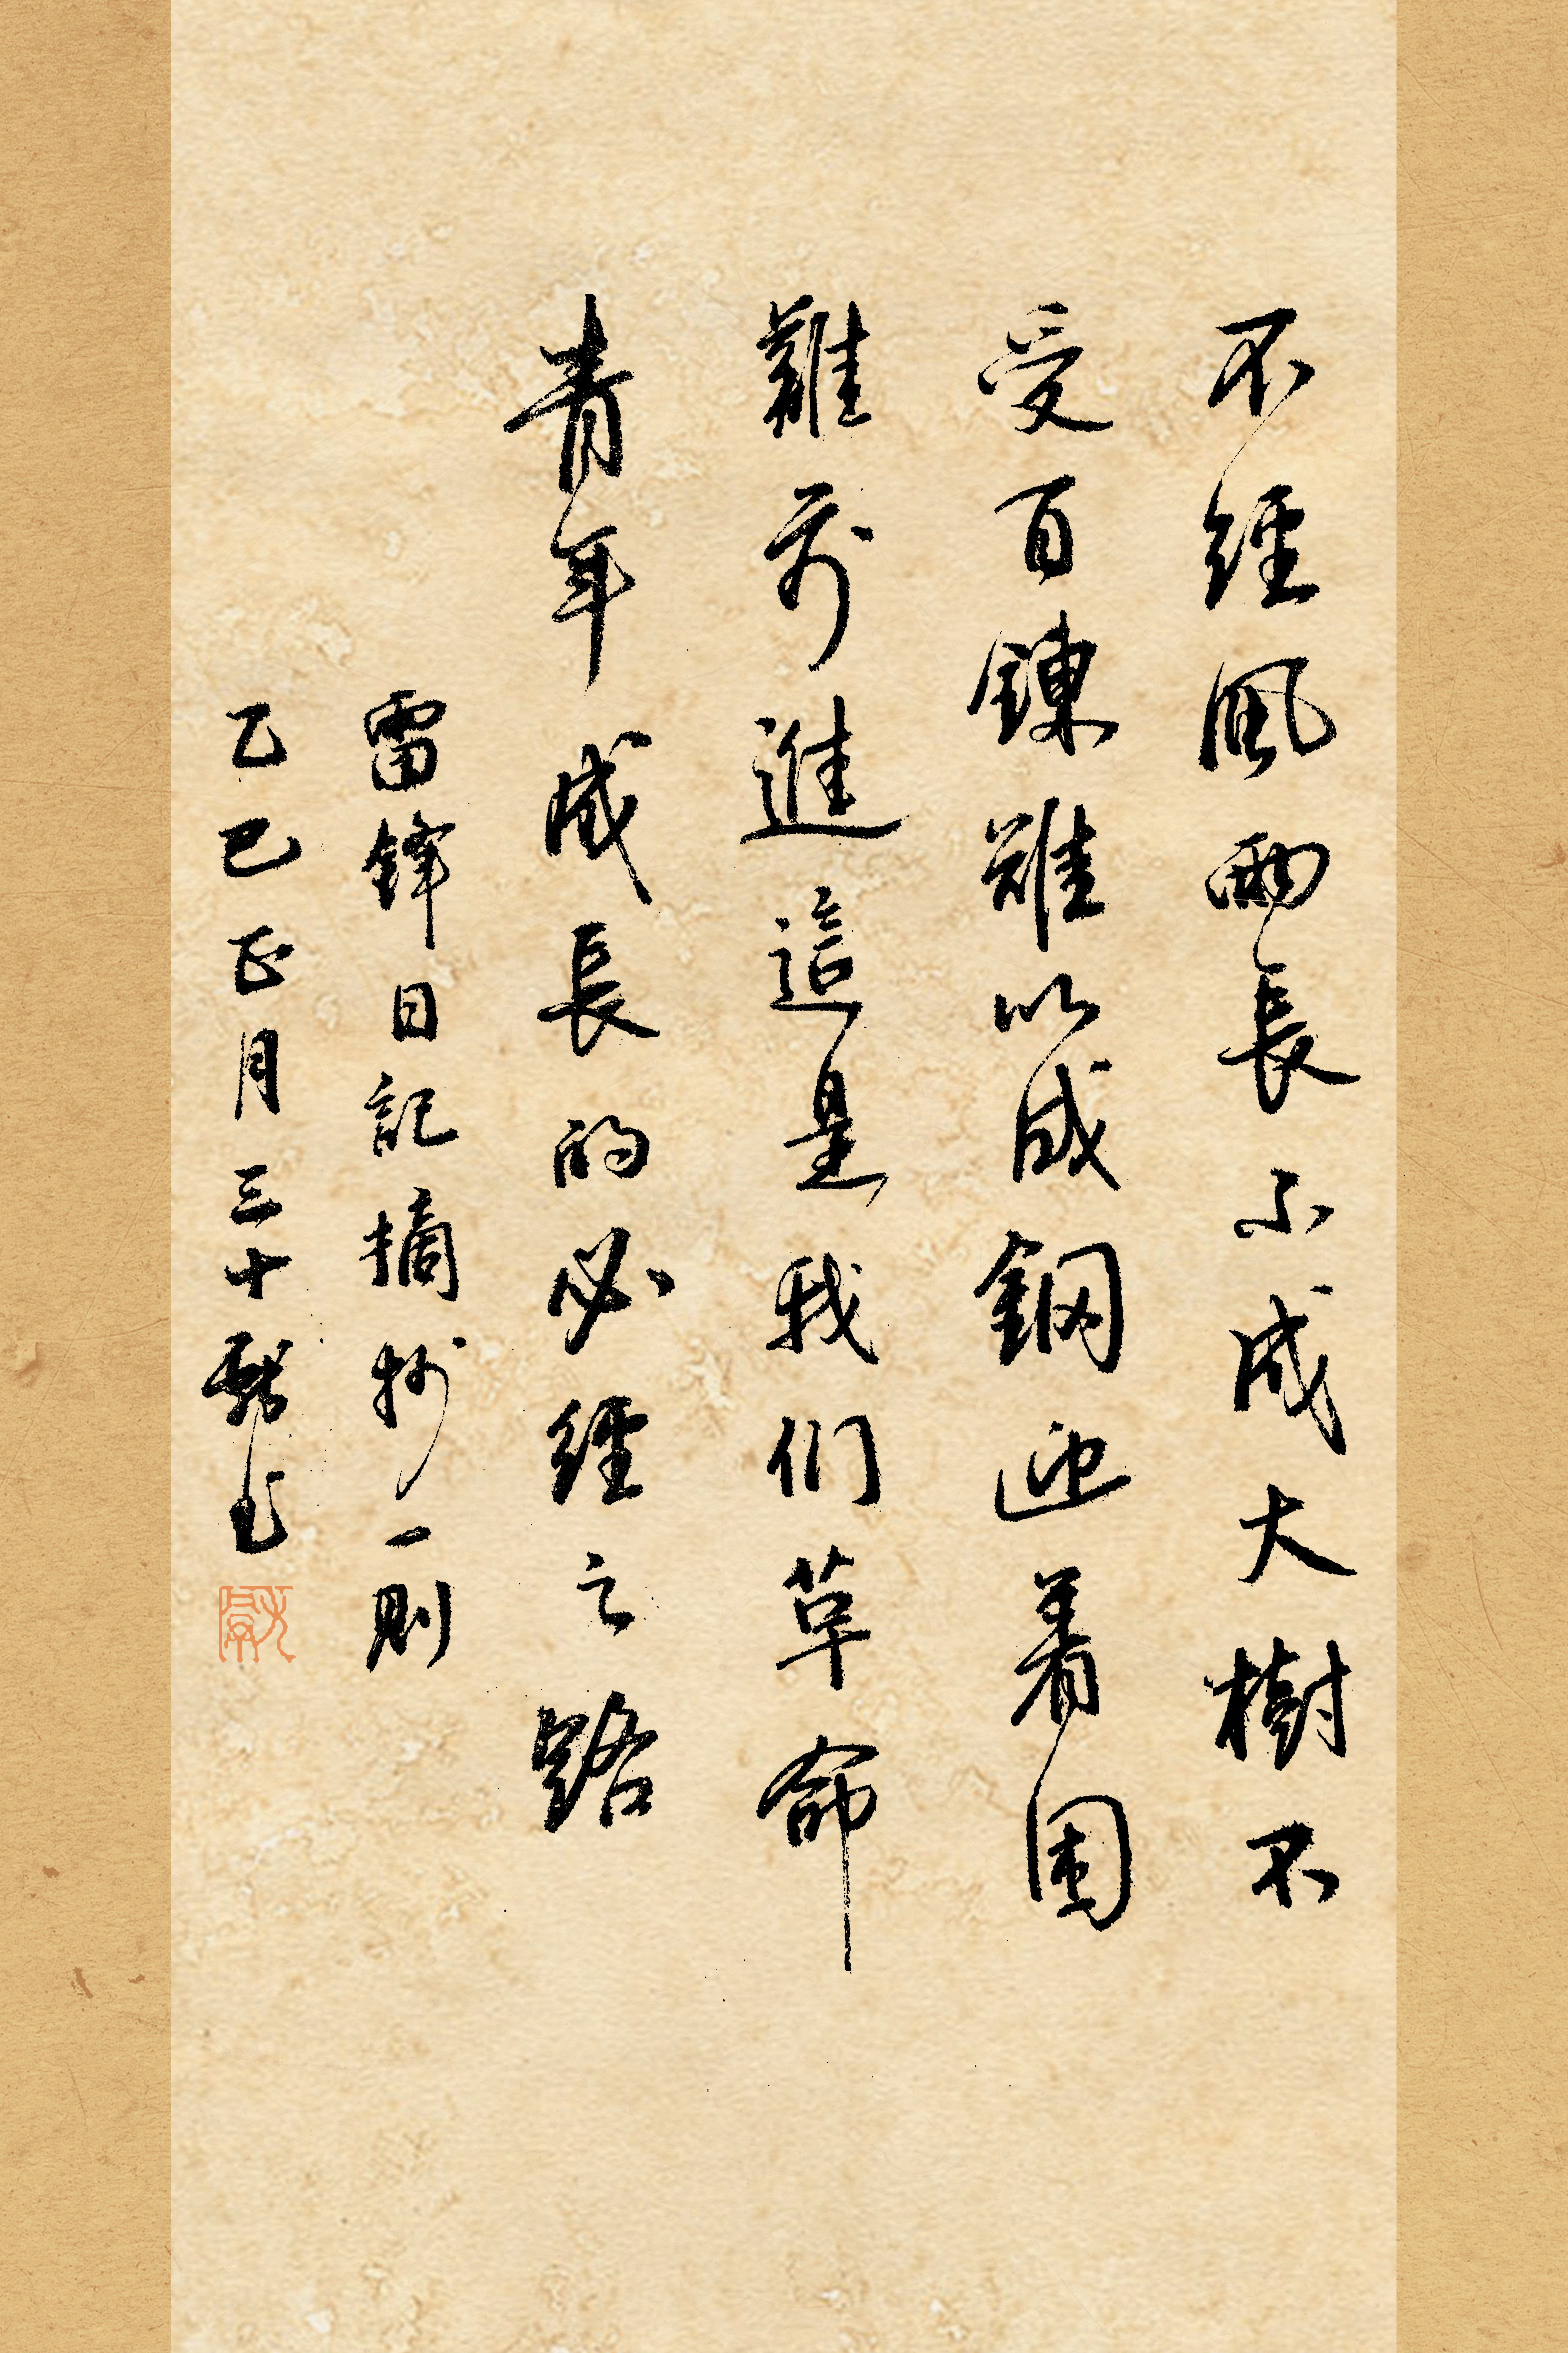 不經風雨長不成大樹不
受百鍊難以成鋼迎着困
難前進這是我们革命
青年成長的必經之路
雷鋒日記摘抄一則
乙巳正月三十